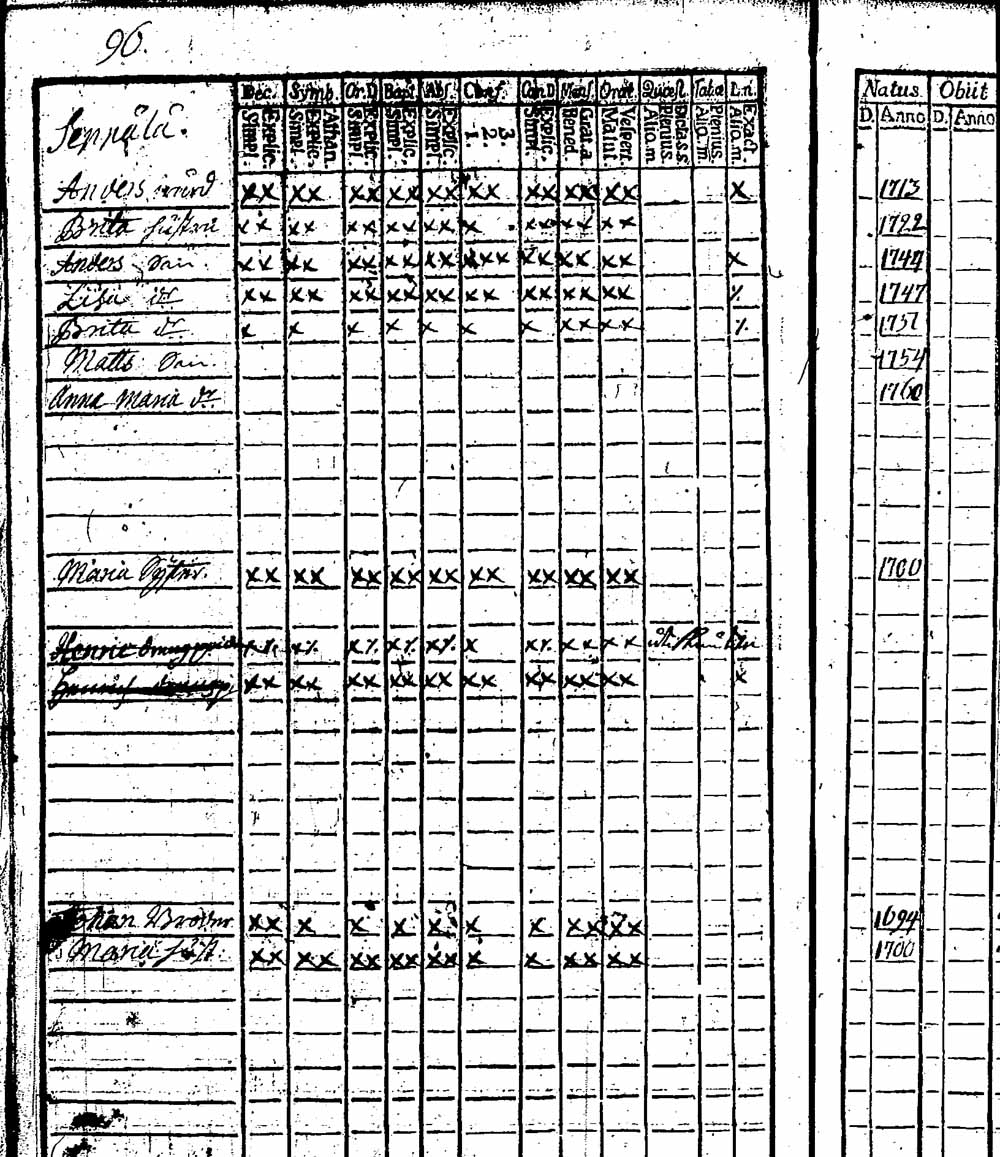 96.
Natus. Obiit
Dec. Symb. Or.D Bapt. Abs. Conf. Cœn.D Mens. Orat. Quæst. Tabæ L.n.
D. Anno D. Anno
Seppälä.
Simpl. Explic. Simpl. Explic. Athan. Simpl. Explic. Simpl. Explic. Simpl. Explic. 1. 2. 3. Simpl. Explic. Bened. Grat.a Matut. Vespert. Aliq.m Plenius. Dicta.s.s Aliq.m Plenius. Aliq.m. Exact.
Anders xx xx xx xx xx xx xx xx xx x 1713
Brita hustru xx xx xx xx xx x xx xx xx 1722
Anders Son. xx xx xx xx xx xxx xx xx xx x 1744
Lisa dr xx xx xx xx xx xx xx xx xx 1747
Brita dr x x x x x x x xx xx 1751
Matts Son. 1754
Anna Maria dr 1760
Maria xx xx xx xx xx xx xx xx xx 1700
Henric
xx xx xx xx xx xx xx xx xx x
Johan xx x x x x x x xx xx 1694
Maria hust. xx xx xx xx xx x x xx xx 1700